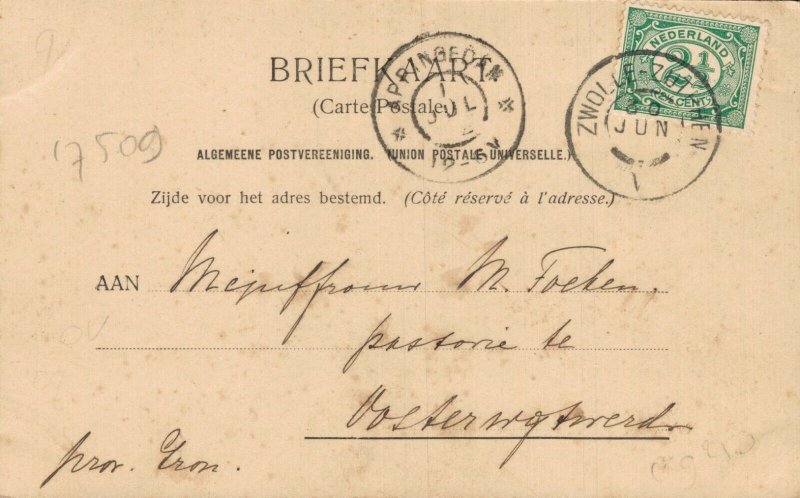 BRIEFKAART
(Carte Postale.)
ALGEMEENE POSTVEREENIGING. (UNION POSTALE UNIVERSELLE.)
Zijde voor het adres bestemd. (Côté réservé à l'adresse.)
AAN Mejuffrouw M. Foeken.
pastorie te
Oosterwijtwerd.
prov. Gron.
NEDERLAND
2½
CENT
APPINGEDAM
1
JUL
ZWOLLE
JUN
17509